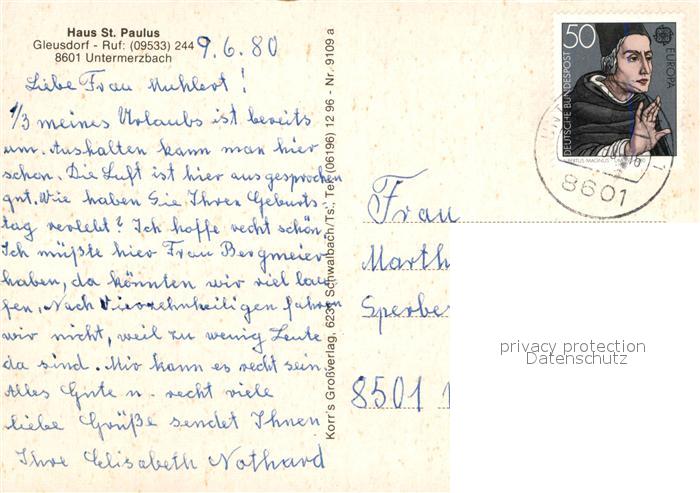 Haus St. Paulus
Gleusdorf - Ruf: (09533) 244
8601 Untermerzbach
9.6.80
Liebe Frau Muhlert!
1/3 meines Urlaubs ist bereits
um. Aushalten kann man hier
schon. Die Luft ist hier ausgesprochen
gut. Wie haben Sie Ihren Geburts-
tag verlebt? Ich hoffe recht schön.
Ich müßte hier Frau Bergmeier
haben, da könnten wir viel lau-
fen. Nach Vierzehnheiligen fahren
wir nicht, weil zu wenig Leute
da sind. Mir kann es recht sein.
Alles Gute u. recht viele
liebe Grüße sendet Ihnen
Ihre Elisabeth Nothard
Korr's Großverlag, 6231 Schwalbach/Ts., Tel. (06196) 12 96 - Nr. 9109 a
50
DEUTSCHE BUNDESPOST
EUROPA
8601
Frau
Marth
Sperbe
8501
privacy protection
Datenschutz